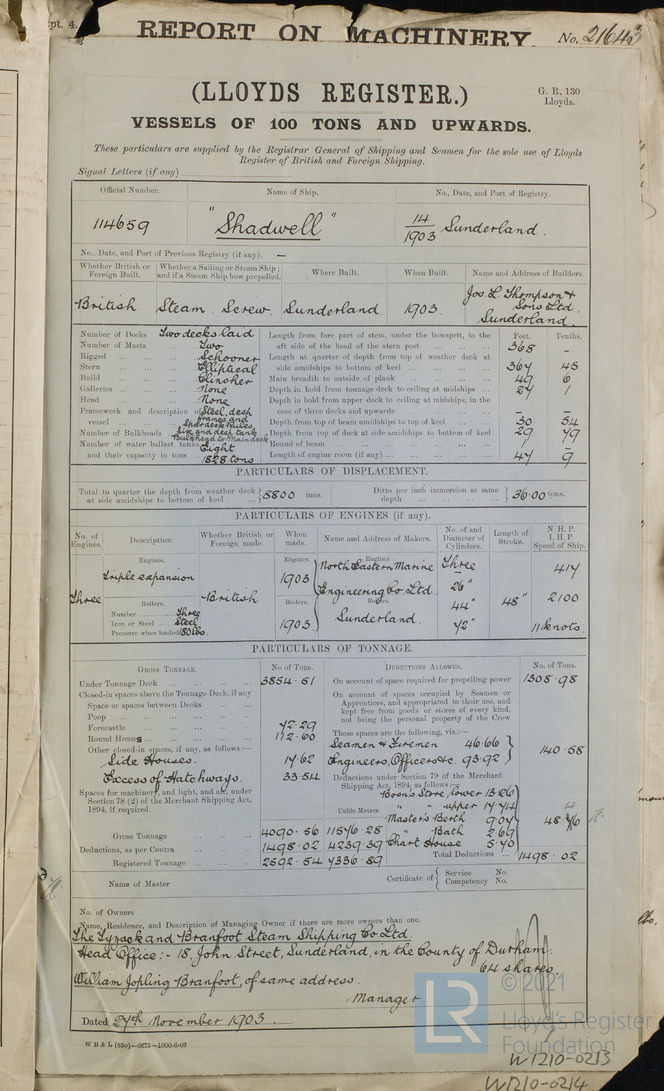 pt. 4.
REPORT ON MACHINERY. No. 21643
(LLOYDS REGISTER.)
G. R. 130
Lloyds.
VESSELS OF 100 TONS AND UPWARDS.
These particulars are supplied by the Registrar General of Shipping and Seamen for the sole use of Lloyds
Register of British and Foreign Shipping.
Signal Letters (if any)
Official Number. Name of Ship. No., Date, and Port of Registry.
114659 "Shadwell" 14/1903 Sunderland.
No., Date, and Port of Previous Registry (if any). —
Whether British or Foreign Built. Whether a Sailing or Steam Ship; and if a Steam Ship how propelled. Where Built. When Built. Name and Address of Builders.
British Steam. Screw. Sunderland. 1903. Jos. L. Thompson & Sons Ltd. Sunderland.
Number of Decks Two decks laid
Number of Masts Two
Rigged Schooner
Stern Elliptical
Build Clincher
Galleries None
Head None
Framework and description of vessel Steel, deep frames and
Number of Bulkheads Six and deep tank Bulkhead to Main deck
Number of water ballast tanks and their capacity in tons Eight 1828 tons
Feet. Tenths.
Length from fore part of stem, under the bowsprit, to the aft side of the head of the stern post 368 –
Length at quarter of depth from top of weather deck at side amidships to bottom of keel 367 45
Main breadth to outside of plank 49 6
Depth in hold from tonnage deck to ceiling at midships 27 1
Depth in hold from upper deck to ceiling at midships, in the case of three decks and upwards – –
Depth from top of beam amidships to top of keel 30 54
Depth from top of deck at side amidships to bottom of keel 29 79
Round of beam
Length of engine room (if any) 47 9
PARTICULARS OF DISPLACEMENT.
Total to quarter the depth from weather deck at side amidships to bottom of keel 8800 tons. Ditto per inch immersion at same depth 36.00 tons.
PARTICULARS OF ENGINES (if any).
No. of Engines. Description. Whether British or Foreign made. When made. Name and Address of Makers. No. of and Diameter of Cylinders. Length of Stroke. N. H. P. I. H. P. Speed of Ship.
Engines. Engines. Engines
Triple expansion 1903 North Eastern Marine Three 417
Three British Engineering Co. Ltd. 26" 48" 2100
Boilers. Boilers. Boilers. 44"
Number Three
Iron or Steel Steel 1903 Sunderland. 72" 11 knots.
Pressure when loaded 180 lbs.
PARTICULARS OF TONNAGE.
GROSS TONNAGE. No of Tons.
Under Tonnage Deck 3854.51
Closed-in spaces above the Tonnage Deck, if any
Space or spaces between Decks
Poop
Forecastle 72.29
Round Houses 112.60
Other closed-in spaces, if any, as follows:—
Side Houses. 17 62
Excess of Hatchways. 33 54
Spaces for machinery and light, and air, under Section 78 (2) of the Merchant Shipping Act, 1894, if required.
Cubic Metres
Gross Tonnage 4090.56 11576.28
Deductions, as per Contra 1498.02 4239.39
Registered Tonnage 2592.54 7336.89
DEDUCTIONS ALLOWED. No. of Tons.
On account of space required for propelling power 1308.98
On account of spaces occupied by Seamen or Apprentices, and appropriated to their use, and kept free from goods or stores of every kind, not being the personal property of the Crew
These spaces are the following, viz.:—
Seamen & Firemen 46.66
Engineers, Officers &c. 93.92 140.58
Deductions under Section 79 of the Merchant Shipping Act, 1894, as follows:—
Bosn's Store, lower 13.26
" " upper 17.74
Master's Berth 9.07
" Bath 2.69
Chart House 5.70
48.46
Total Deductions 1498.02
Name of Master Certificate of Service No. Competency No.
No. of Owners
Name, Residence, and Description of Managing Owner if there are more owners than one.
The Tyzack and Branfoot Steam Shipping Co. Ltd.
Head Office:- 18, John Street, Sunderland, in the County of Durham.
64 shares.
William Jopling Branfoot, of same address.
Manager.
Dated 27th November 1903.
W B & L (83o)—6672—1000-6-03
LR © 2021
Lloyd's Register
Foundation
W1210-0213
W1210-0214